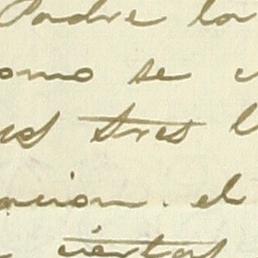 Padre la
omo se
tres
ación el
ciertas